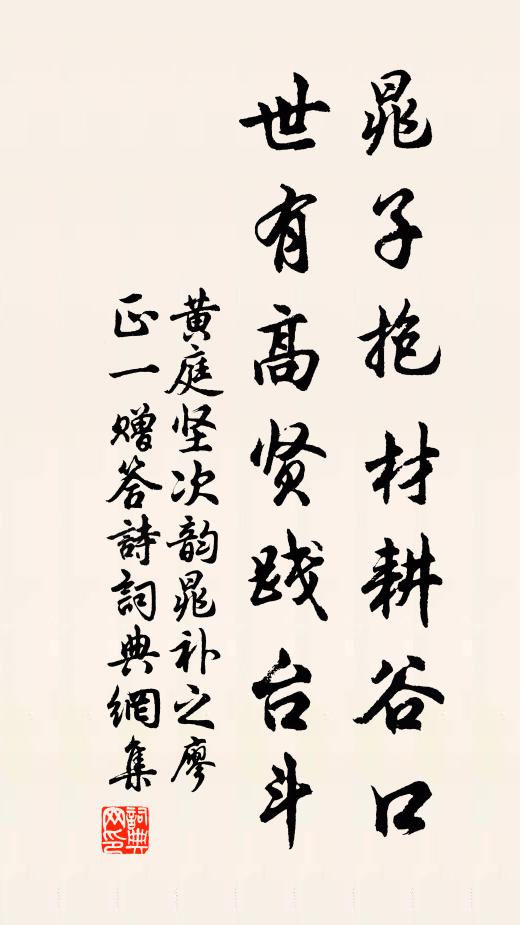 晁子抱材耕谷口
世有高贤践台斗
黄庭坚次韵晁补之廖
正一赠答詩詞典網集
詞典
网印